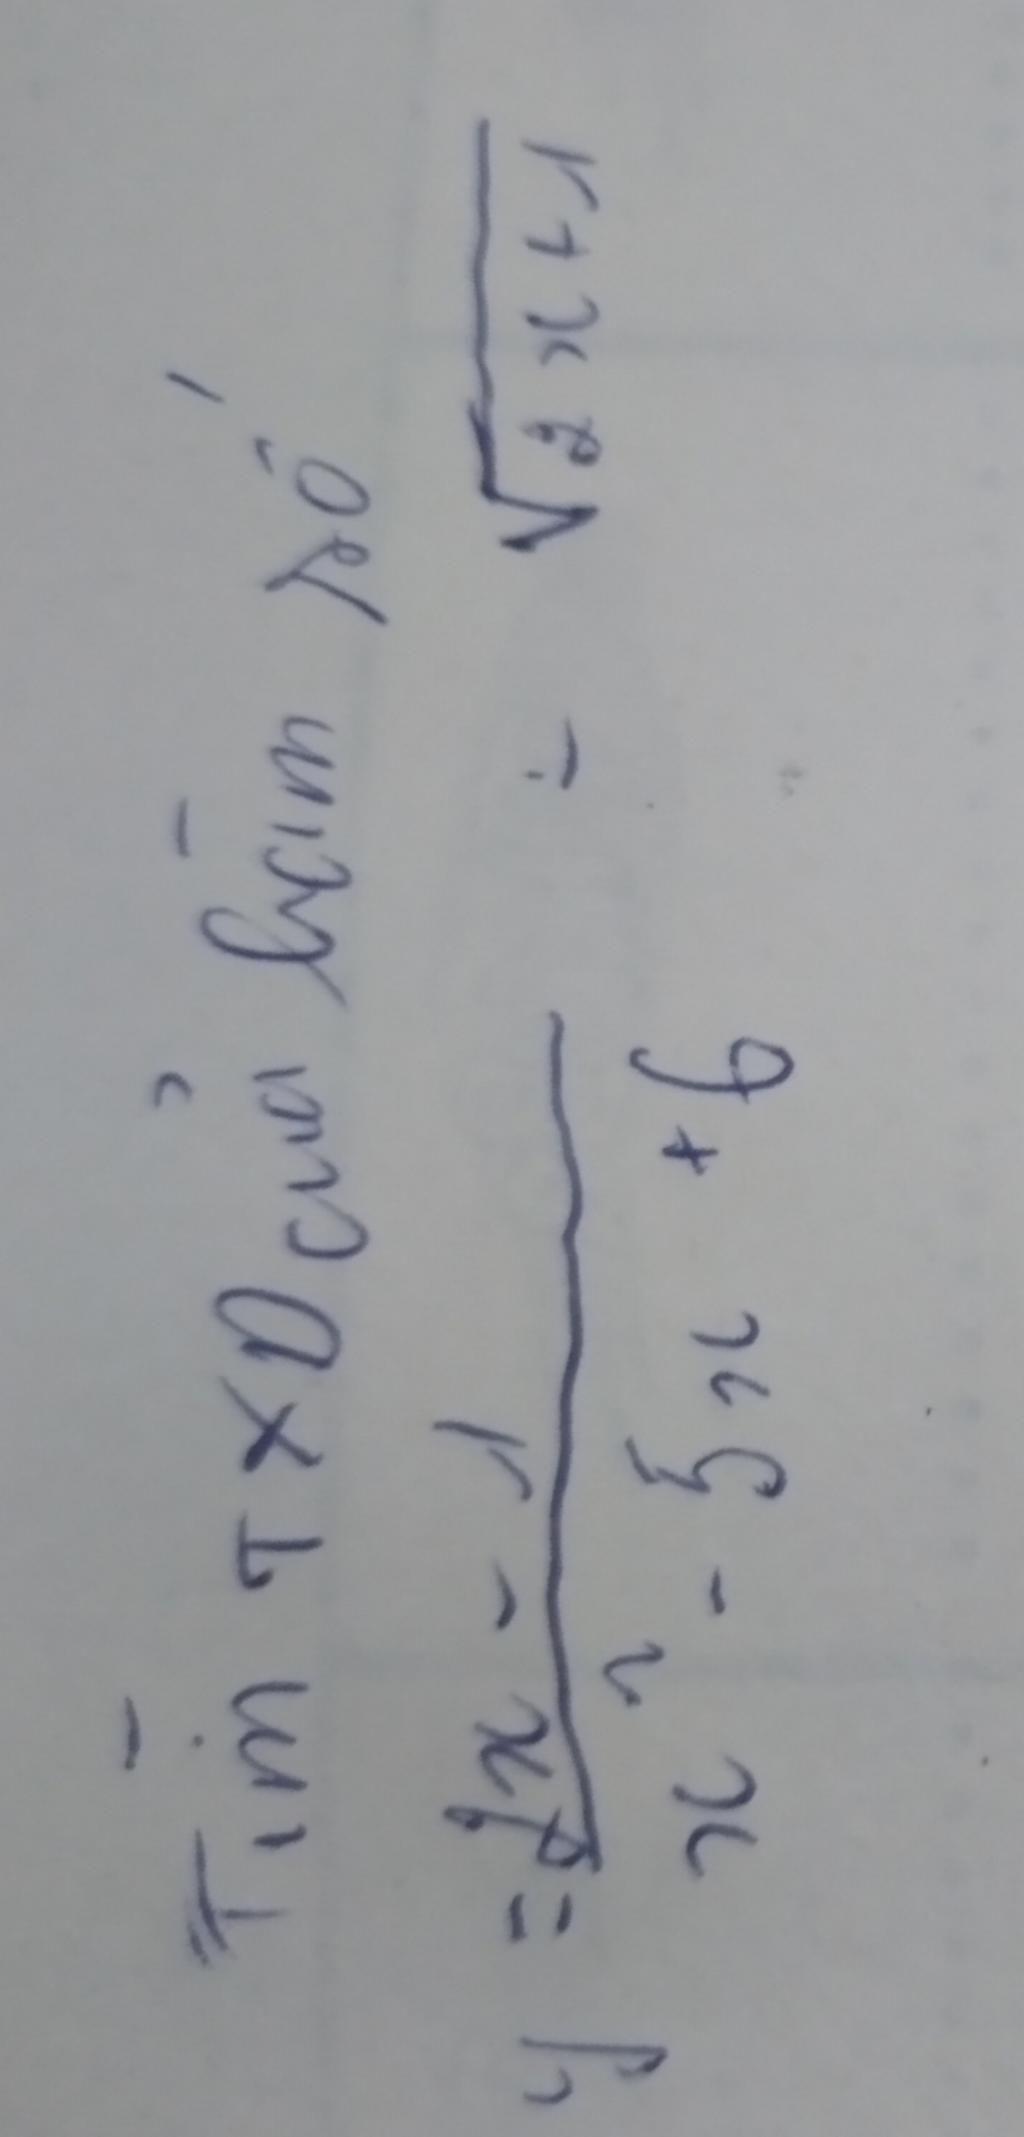 Tìm TXD của hàm số
y = (2x - 1)/(x² - 5x + 6) - √(2x+1)